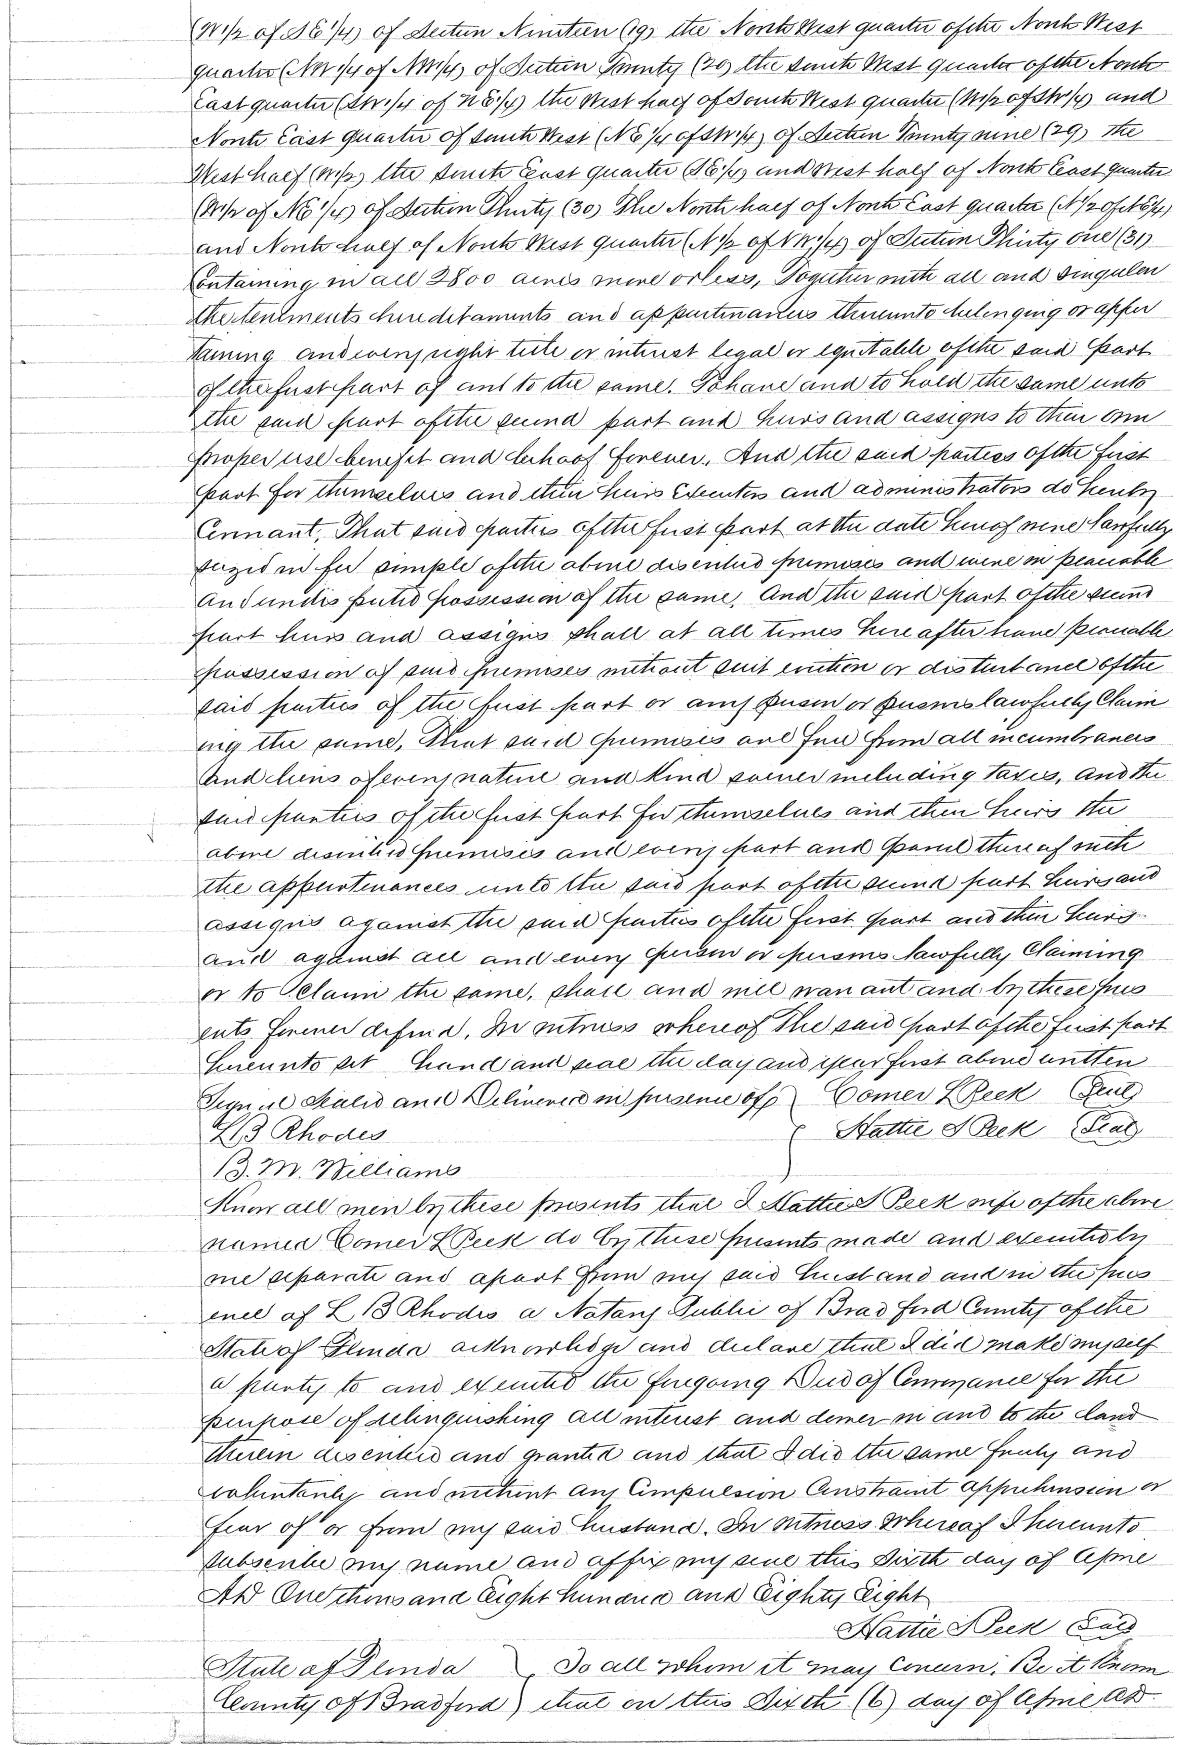 (W1/2 of SE 1/4) of Section Nineteen (19) the North West quarter of the North West
quarter (NW 1/4 of NW 1/4) of Section Twenty (20) the South West quarter of the North
East quarter (SW 1/4 of NE 1/4) the West half of South West quarter (W1/2 of SW 1/4) and
North East quarter of South West (NE 1/4 of SW 1/4) of Section Twenty nine (29) the
West half (W1/2) the South East quarter (SE 1/4) and West half of North East quarter
(W1/2 of NE 1/4) of Section Thirty (30) The North half of North East quarter (N 1/2 of NE 1/4)
and North half of North West quarter (N 1/2 of NW 1/4) of Section Thirty One (31)
Containing in all 2800 acres more or less, Together with all and singular
the tenements hereditaments and appurtenances thereunto belonging or apper
taining and every right title or interest legal or equitable of the said part
of the first part of and to the same. To have and to hold the same unto
the said part of the second part and heirs and assigns to their own
proper use benefit and behoof forever. And the said parties of the first
part for themselves and their heirs Executors and administrators do hereby
Covenant, That said parties of the first part at the date hereof were lawfully
seized in fee simple of the above described premises and were in peaceable
and undisputed possession of the same, And the said part of the second
part heirs and assigns shall at all times here after have peaceable
possession of said premises without suit eviction or disturbance of the
said parties of the first part or any person or persons lawfully Claim
ing the same, That said premises are free from all incumbrances
and liens of every nature and kind soever including taxes, and the
said parties of the first part for themselves and their heirs the
above described premises and every part and parcel thereof with
the appurtenances unto the said part of the second part heirs and
assigns against the said parties of the first part and their heirs
and against all and every person or persons lawfully Claiming
or to Claim the same, shall and will warrant and by these pres
ents forever defend. In witness whereof the said part of the first part
hereunto set hand and seal the day and year first above written
Signed Sealed and Delivered in presence of } Comer L Peek (Seal)
L B Rhodes { Hattie S Peek (Seal)
B. M. Williams
Know all men by these presents that I Hattie S Peek wife of the above
named Comer L Peek do by these presents made and executed by
me separate and apart from my said husband and in the pres
ence of L B Rhodes a Notary Public of Bradford County of the
State of Florida acknowledge and declare that I did make myself
a party to and executed the foregoing Deed of Conveyance for the
purpose of relinquishing all interest and dower in and to the land
therein described and granted and that I did the same freely and
voluntarily and without any Compulsion Constraint apprehension or
fear of or from my said husband. In witness whereof I hereunto
subscribe my name and affix my seal this Sixth day of April
AD One thousand Eight hundred and Eighty Eight
Hattie S Peek Seal
State of Florida ) To all whom it may Concern; Be it Known
County of Bradford ) that on this Sixth (6) day of April AD.